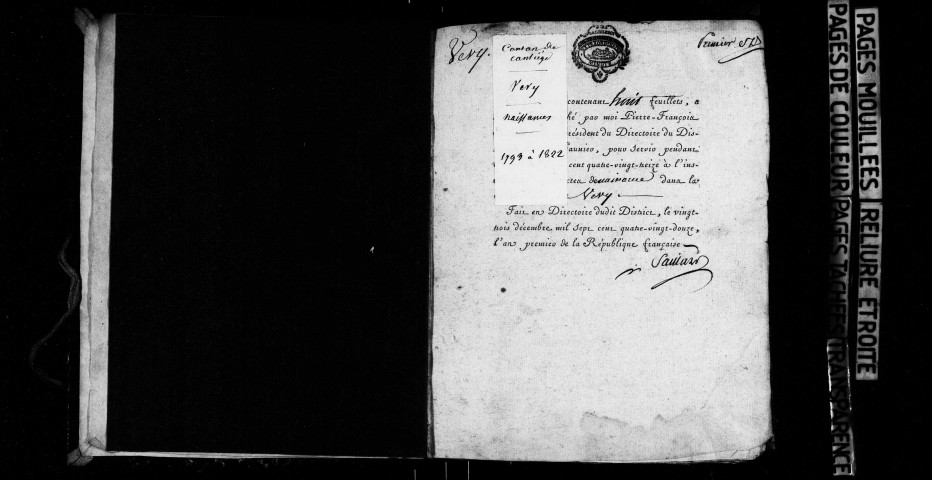 Very.
Canton de
Cantigé
Very
naissances
1793 à 1822
Premier
contenant huit feuillets, a
hé par moi Pierre-François
résident du Directoire du Dis-
aunier, pour servir pendant
cent quatre-vingt-treize à l'ins-
de naissance dans la
Very
Fait en Directoire dudit District, le vingt-
trois décembre mil sept cent quatre-vingt-douze,
l'an premier de la République française
PAGES MOUILLEES RELIURE ETROITE
PAGES DE COULEUR PAGES TACHEES TRANSPARENCE